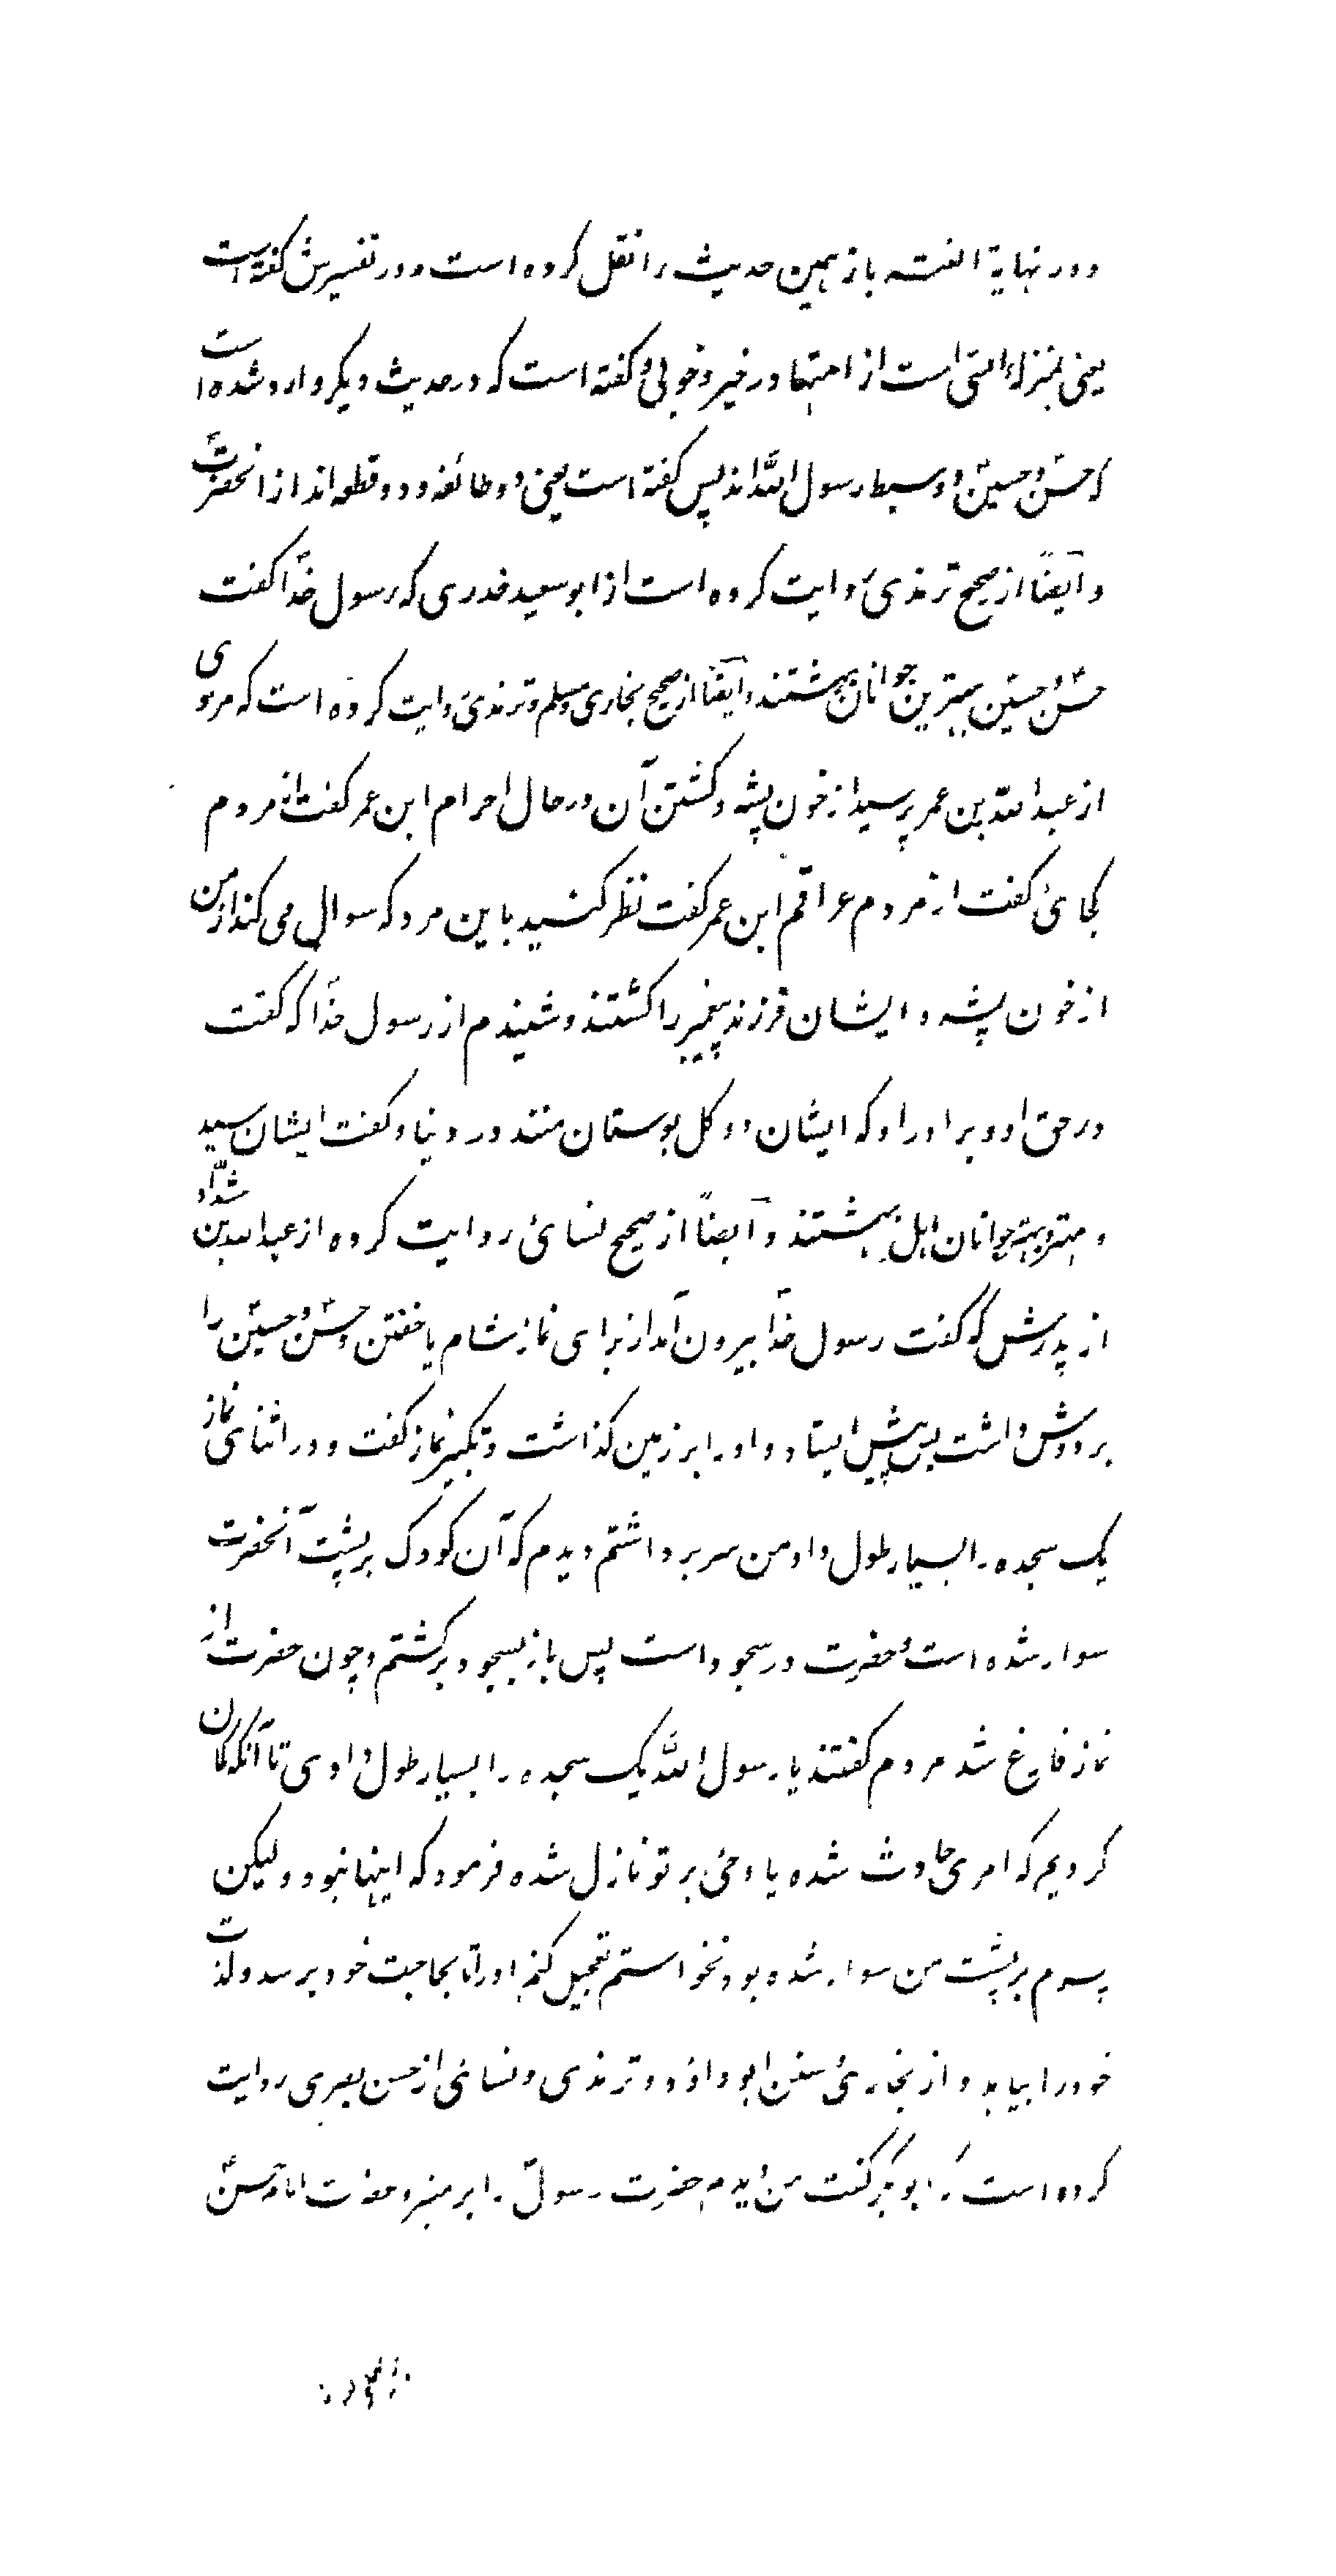 و در نهایة گفته باز همین حدیث را نقل کرده است و در تفسیرش گفته است
یعنی بمنزلهٔ امتی است از امتها در خیر و خوبی و گفته است که در حدیث دیگر وارد شده است
که حسنؑ و حسینؑ دو سبط رسول اللهؐ اند پس گفته است یعنی دو طائفه و دو قطعه اند از انحضرتؐ
و ایضاً از صحیح ترمذی روایت کرده است از ابو سعید خدری که رسول خداؐ گفت
حسنؑ و حسینؑ بهترین جوانان بهشتند و ایضاً از صحیح بخاری و مسلم و ترمذی روایت کرده است که مردی
از عبد الله بن عمر پرسید از خون پشه و کشتن آن در حال احرام ابن عمر گفت از مردم
کجائی گفت از مردم عراقم ابن عمر گفت نظر کنید باین مرد که سوال می کند از من
از خون پشه و ایشان فرزند پیغمبر را کشتند و شنیدم از رسول خداؐ که گفت
در حق او و برادر او که ایشان دو گل بوستان منند در دنیا و گفت ایشان سید
و مهتر و بهتر جوانان اهل بهشتند و ایضاً از صحیح نسائی روایت کرده از عبد الله بن شداد
از پدرش که گفت رسول خداؐ بیرون آمد از برای نماز شام یا خفتن و حسنؑ و حسینؑ را
بر دوش داشت پس پیش ایستاد و او را بر زمین گذاشت و تکبیر نماز گفت و در اثنای نماز
یک سجده را بسیار طول داد من سر برداشتم دیدم که آن کودک بر پشت آنحضرت
سوار شده است و حضرت در سجود است پس باز بسجود برگشتم و چون حضرت از
نماز فارغ شد مردم گفتند یا رسول اللهؐ یک سجده را بسیار طول دادی تا آنکه گمان
کردیم که امری حادث شده یا وحی بر تو نازل شده فرمود که اینها نبود و لیکن
پسرم بر پشت من سوار شده بود نخواستم تعجیل کنم او را تا بحاجت خود برسد و لذت
خود را بیابد و از بخاری و سنن ابو داود و ترمذی و نسائی از حسن بصری روایت
کرده است که ابو بکر گفت من دیدم حضرت رسولؐ را بر منبر و حضرت امام حسنؑ